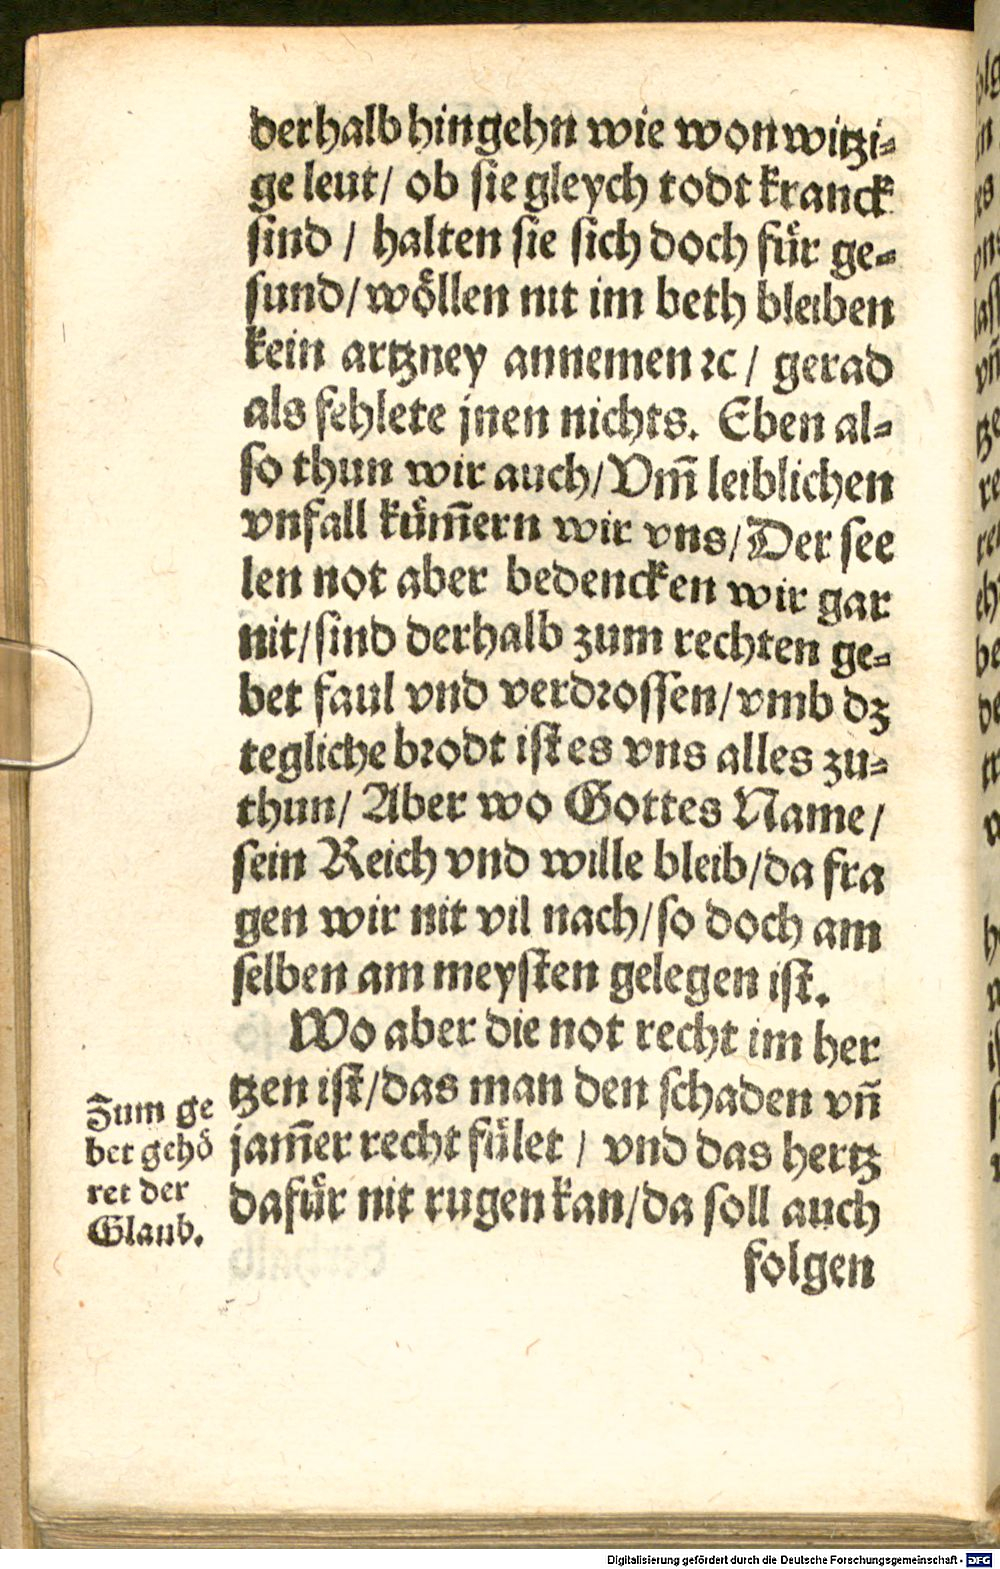 derhalb hingehn wie wonwitzi-
ge leut/ ob sie gleych todt kranck
sind / halten sie sich doch für ge-
sund/wöllen nit im beth bleiben
kein artzney annemen ꝛc/ gerad
als fehlete jnen nichts. Eben al-
so thun wir auch/Vm̃ leiblichen
vnfall küm̃ern wir vns/Der see
len not aber bedencken wir gar
nit/sind derhalb zum rechten ge-
bet faul vnd verdrossen/vmb dz
tegliche brodt ist es vns alles zu-
thun/ Aber wo Gottes Name/
sein Reich vnd wille bleib/da fra
gen wir nit vil nach/so doch am
selben am meysten gelegen ist.
Wo aber die not recht im her
tzen ist/das man den schaden vñ
jam̃er recht fület / vnd das hertz
dafür nit rugen kan/da soll auch
folgen
Zum ge
bet gehö
ret der
Glaub.
Digitalisierung gefördert durch die Deutsche Forschungsgemeinschaft - DFG